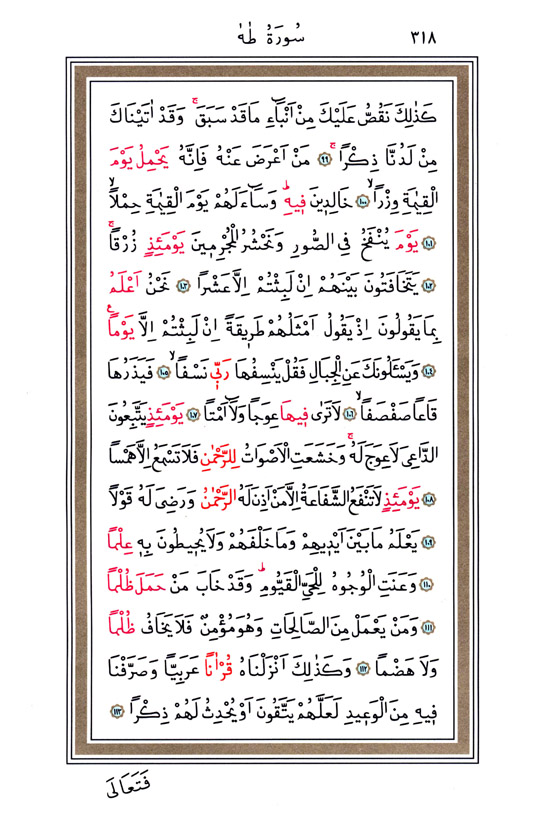 ٣١٨
سُورَةُ طٰهٰ
كَذٰلِكَ نَقُصُّ عَلَيْكَ مِنْ اَنْبَٓاءِ مَاقَدْ سَبَقَۚ وَقَدْ اٰتَيْنَاكَ
مِنْ لَدُنَّا ذِكْرًاۚ ﴿٩٩﴾ مَنْ اَعْرَضَ عَنْهُ فَاِنَّهُ يَحْمِلُ يَوْمَ
الْقِيٰمَةِ وِزْرًاۙ ﴿١٠٠﴾ خَالِدٖينَ فٖيهِۜ وَسَٓاءَ لَهُمْ يَوْمَ الْقِيٰمَةِ حِمْلًاۙ
﴿١٠١﴾ يَوْمَ يُنْفَخُ فِى الصُّورِ وَنَحْشُرُ الْمُجْرِمٖينَ يَوْمَئِذٍ زُرْقًاۚ
﴿١٠٢﴾ يَتَخَافَتُونَ بَيْنَهُمْ اِنْ لَبِثْتُمْ اِلَّا عَشْرًا ﴿١٠٣﴾ نَحْنُ اَعْلَمُ
بِمَا يَقُولُونَ اِذْ يَقُولُ اَمْثَلُهُمْ طَرٖيقَةً اِنْ لَبِثْتُمْ اِلَّا يَوْمًاࣖ
﴿١٠٤﴾ وَيَسْـَٔلُونَكَ عَنِ الْجِبَالِ فَقُلْ يَنْسِفُهَا رَبّٖى نَسْفًاۙ ﴿١٠٥﴾ فَيَذَرُهَا
قَاعًا صَفْصَفًاۙ ﴿١٠٦﴾ لَا تَرٰى فٖيهَا عِوَجًا وَلَٓا اَمْتًاۜ ﴿١٠٧﴾ يَوْمَئِذٍ يَتَّبِعُونَ
الدَّاعِىَ لَا عِوَجَ لَهُۚ وَخَشَعَتِ الْاَصْوَاتُ لِلرَّحْمٰنِ فَلَا تَسْمَعُ اِلَّا هَمْسًا
﴿١٠٨﴾ يَوْمَئِذٍ لَا تَنْفَعُ الشَّفَاعَةُ اِلَّا مَنْ اَذِنَ لَهُ الرَّحْمٰنُ وَرَضِىَ لَهُ قَوْلًا
﴿١٠٩﴾ يَعْلَمُ مَا بَيْنَ اَيْدٖيهِمْ وَمَا خَلْفَهُمْ وَلَا يُحٖيطُونَ بِهٖ عِلْمًا
﴿١١٠﴾ وَعَنَتِ الْوُجُوهُ لِلْحَىِّ الْقَيُّومِۜ وَقَدْ خَابَ مَنْ حَمَلَ ظُلْمًا
﴿١١١﴾ وَمَنْ يَعْمَلْ مِنَ الصَّالِحَاتِ وَهُوَ مُؤْمِنٌ فَلَا يَخَافُ ظُلْمًا
وَلَا هَضْمًا ﴿١١٢﴾ وَكَذٰلِكَ اَنْزَلْنَاهُ قُرْاٰنًا عَرَبِيًّا وَصَرَّفْنَا
فٖيهِ مِنَ الْوَعٖيدِ لَعَلَّهُمْ يَتَّقُونَ اَوْ يُحْدِثُ لَهُمْ ذِكْرًا ﴿١١٣﴾
فَتَعَالَى